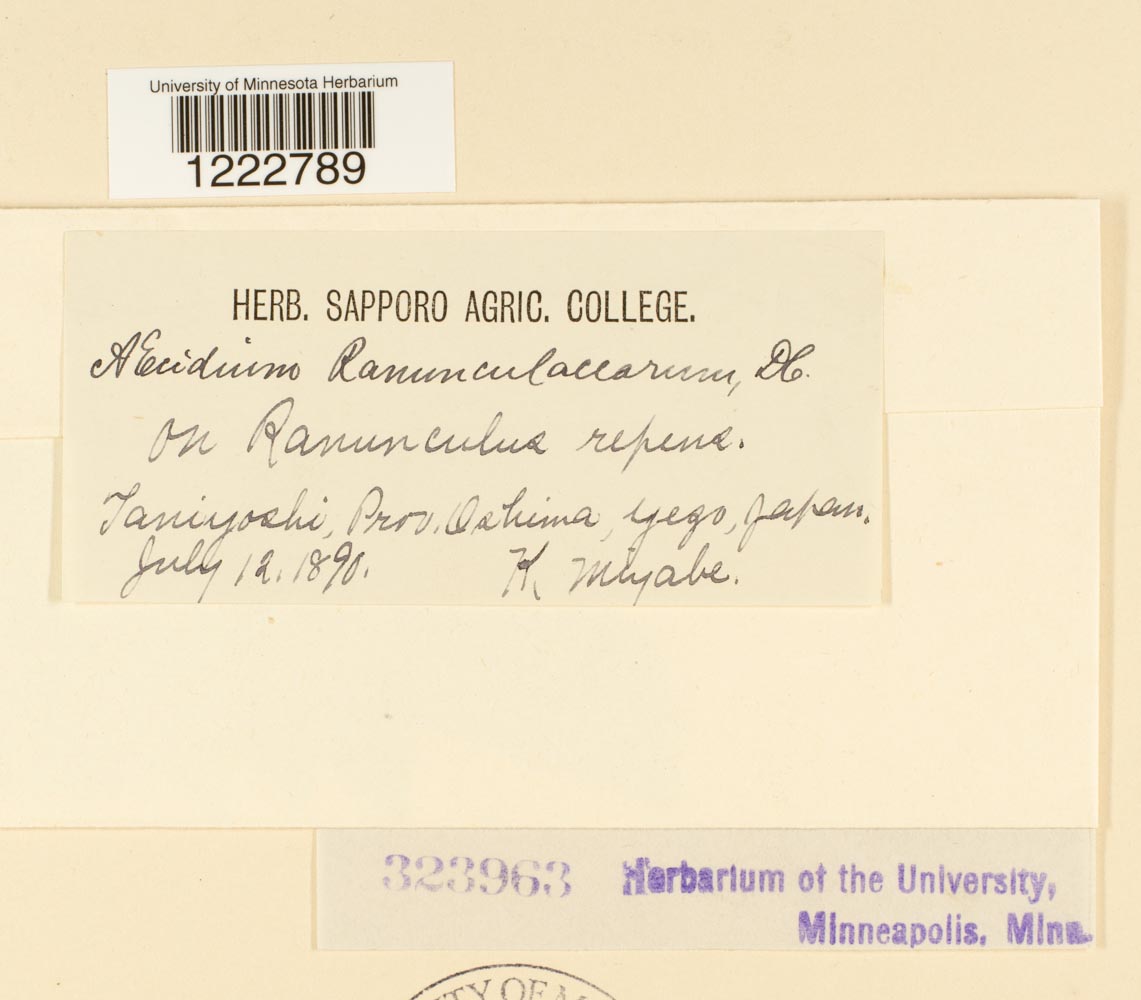 University of Minnesota Herbarium
1222789
HERB. SAPPORO AGRIC. COLLEGE.
AEcidium Ranunculacearum, DC.
on Ranunculus repens.
Taniyoshi, Prov. Oshima, Yezo, Japan.
July 12. 1890. K. Miyabe.
323963 Herbarium of the University,
Minneapolis, Minn.